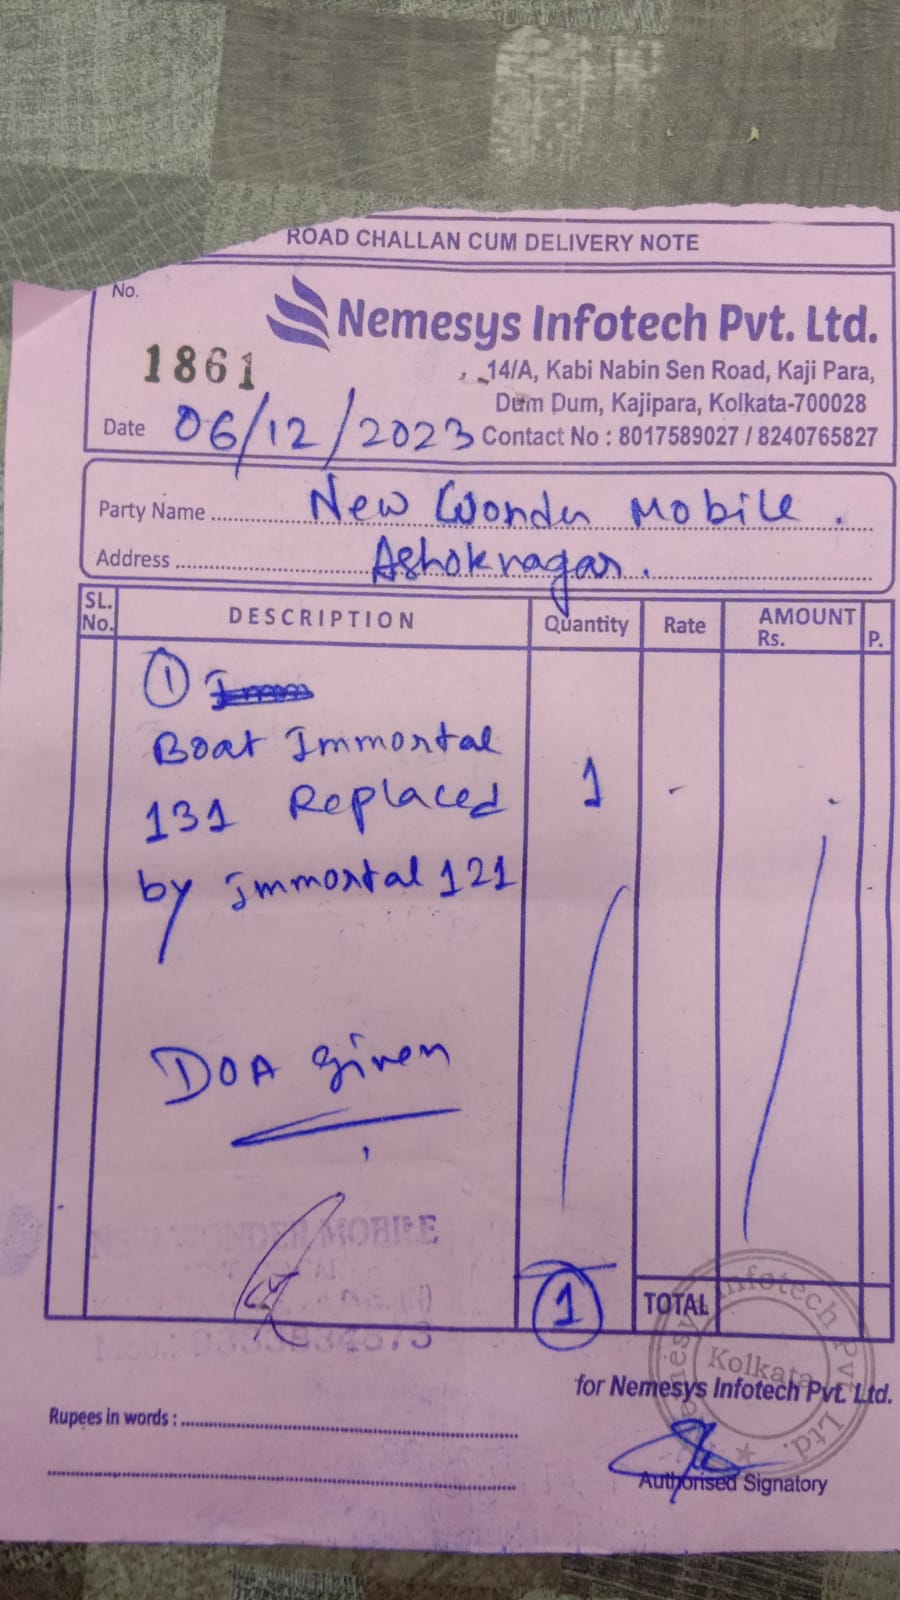 ROAD CHALLAN CUM DELIVERY NOTE
No.
1861
Nemesys Infotech Pvt. Ltd.
14/A, Kabi Nabin Sen Road, Kaji Para,
Dum Dum, Kajipara, Kolkata-700028
Contact No : 8017589027 / 8240765827
Date 06/12/2023
Party Name New Wonder Mobile.
Address Ashoknagar.
SL. No. DESCRIPTION Quantity Rate AMOUNT Rs. P.
①
Boat Immortal
131 Replaced 1 - -
by Immortal 121
DOA given
WONDER MOBILE
1 TOTAL
Nemesys Infotech Pvt. Ltd.
Kolkata
for Nemesys Infotech Pvt. Ltd.
Rupees in words :
Authorised Signatory